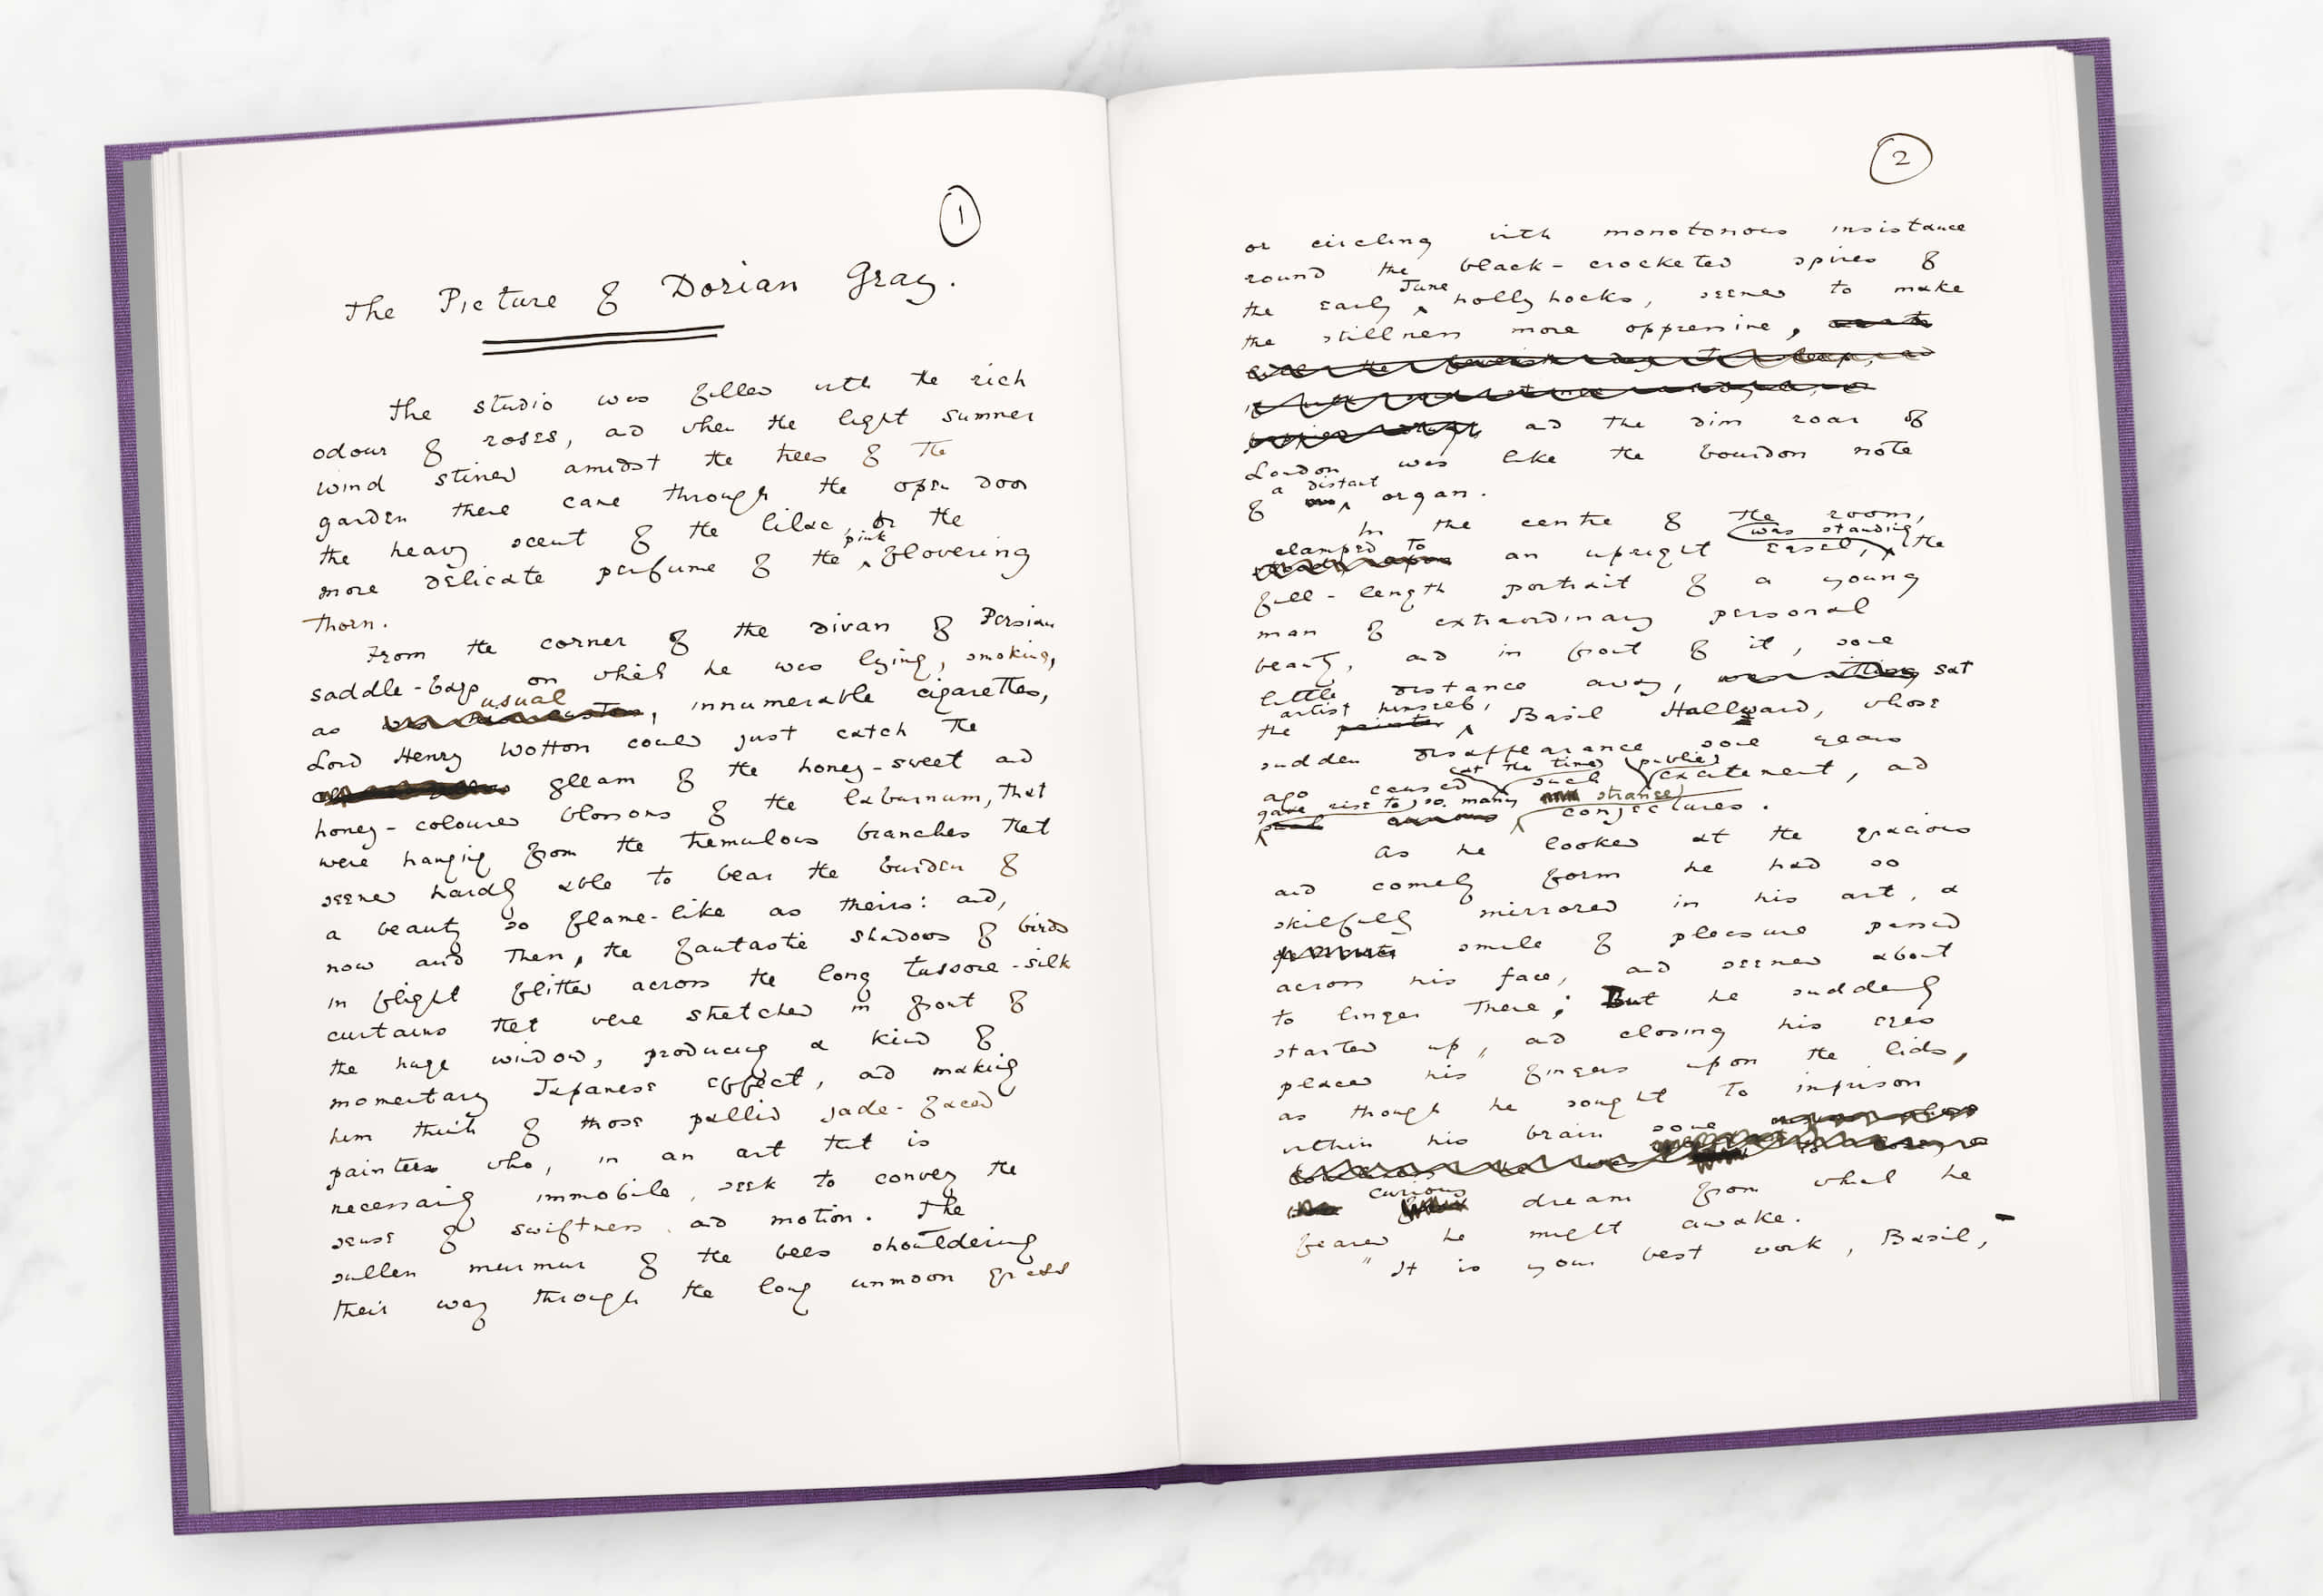 1
The Picture of Dorian Gray.
The studio was filled with the rich
odour of roses, and when the light summer
wind stirred amidst the trees of the
garden there came through the open door
the heavy scent of the lilac, or the
pink
more delicate perfume of the flowering
thorn.
From the corner of the divan of Persian
saddle-bags on which he was lying, smoking,
usual
as was his custom, innumerable cigarettes,
Lord Henry Wotton could just catch the
gleam of the honey-sweet and
honey-coloured blossoms of the laburnum, that
were hanging from the tremulous branches that
seemed hardly able to bear the burden of
a beauty so flame-like as theirs: and,
now and then, the fantastic shadows of birds
in flight flitted across the long tussore-silk
curtains that were stretched in front of
the huge window, producing a kind of
momentary Japanese effect, and making
him think of those pallid jade-faced
painters who, in an art that is
necessarily immobile, seek to convey the
sense of swiftness and motion. The
sullen murmur of the bees shouldering
their way through the long unmown grass
2
or circling with monotonous insistance
round the black-crocketed spires of
June
the early hollyhocks, seemed to make
the stillness more oppressive,
and the dim roar of
London was like the bourdon note
a distant
of organ.
In the centre of the room,
clamped to was standing
an upright easel, the
full-length portrait of a young
man of extraordinary personal
beauty, and in front of it, some
little distance away, was sitting sat
artist himself,
the painter Basil Hallward, whose
sudden disappearance some years
at the time public
ago caused such excitement, and
gave rise to so many strange
conjectures.
As he looked at the gracious
and comely form he had so
skilfully mirrored in his art, a
smile of pleasure passed
across his face, and seemed about
to linger there; But he suddenly
started up, and closing his eyes
placed his fingers upon the lids,
as though he sought to imprison
within his brain some
curious
dream from which he
feared he might awake.
"It is your best work, Basil,"